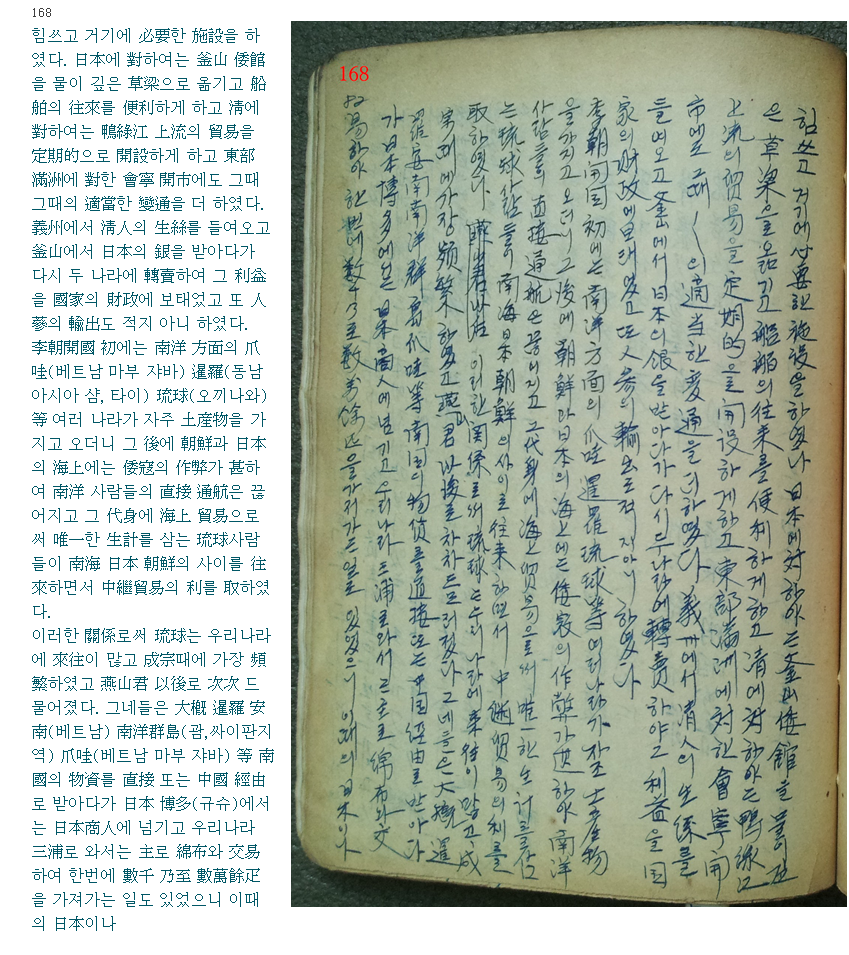 168
힘쓰고 거기에 必要한 施設을 하
였다. 日本에 對하여는 釜山 倭館
을 물이 깊은 草梁으로 옮기고 船
舶의 往來를 便利하게 하고 淸에
對하여는 鴨綠江 上流의 貿易을
定期的으로 開設하게 하고 東部
滿洲에 對한 會寧 開市에도 그때
그때의 適當한 變通을 더 하였다.
義州에서 淸人의 生絲를 들여오고
釜山에서 日本의 銀을 받아다가
다시 두 나라에 轉賣하여 그 利益
을 國家의 財政에 보태었고 또 人
蔘의 輸出도 적지 아니 하였다.
李朝開國 初에는 南洋 方面의 爪
哇(베트남 마부 쟈바) 暹羅(동남
아시아 샴, 타이) 琉球(오끼나와)
等 여러 나라가 자주 土産物을 가
지고 오더니 그 後에 朝鮮과 日本
의 海上에는 倭寇의 作弊가 甚하
여 南洋 사람들의 直接 通航은 끊
어지고 그 代身에 海上 貿易으로
써 唯一한 生計를 삼는 琉球사람
들이 南海 日本 朝鮮의 사이를 往
來하면서 中繼貿易의 利를 取하였
다.
이러한 關係로써 琉球는 우리나라
에 來往이 많고 成宗때에 가장 頻
繁하였고 燕山君 以後로 次次 드
물어졌다. 그네들은 大槪 暹羅 安
南(베트남) 南洋群島(괌,싸이판지
역) 爪哇(베트남 마부 쟈바) 等 南
國의 物資를 直接 또는 中國 經由
로 받아다가 日本 博多(규슈)에서
는 日本商人에 넘기고 우리나라
三浦로 와서는 主로 綿布와 交易
하여 한번에 數千 乃至 數萬餘疋
을 가져가는 일도 있었으니 이때
의 日本이나
168
힘쓰고 거기에 必要한 施設을 하였다 日本에 対하야는 釜山 倭館을 물이 깊
은 草梁으로 옮기고 船舶의 往来를 便利하게 하고 清에 対하야는 鴨緑江
上流의 貿易을 定期的으로 開設하게 하고 東部 満洲에 対한 會寧 開
市에도 그때〳〵의 適当한 変通을 더 하였다 義州에서 清人의 生絲를
들여오고 釜山에서 日本의 銀을 받아다가 다시 두 나라에 轉賣하야 그 利益을 国
家의 財政에 보태였고 또 人蔘의 輸出도 적지 아니 하였다
李朝開国 初에는 南洋方面의 爪哇 暹羅 琉球等 여러 나라가 자조 土産物
을 가지고 오더니 그 後에 朝鮮과 日本의 海上에는 倭寇의 作弊가 甚하야 南洋
사람들의 直接 通航은 끊어지고 그 代身에 海上貿易으로써 唯一한 生計를 삼
는 琉球사람들이 南海 日本 朝鮮의 사이로 往来하면서 中継貿易의 利를
取하였다 이러한 関係로써 琉球는 우리나라에 来往이 많고 成
宗때에 가장 頻繁하였고 燕山君 以後로 차차 드물어졌다 그네들은 大概 暹
羅 安南 南洋群島 爪哇等 南国의 物貨를 直接 또는 中国 経由로 받아다
가 日本 博多에서는 日本商人에 넘기고 우리나라 三浦로 와서 는 主로 綿布와 交
易하야 한번에 数千乃至数萬餘疋을 가져가는 일도 있었으니 이때의 日本이나